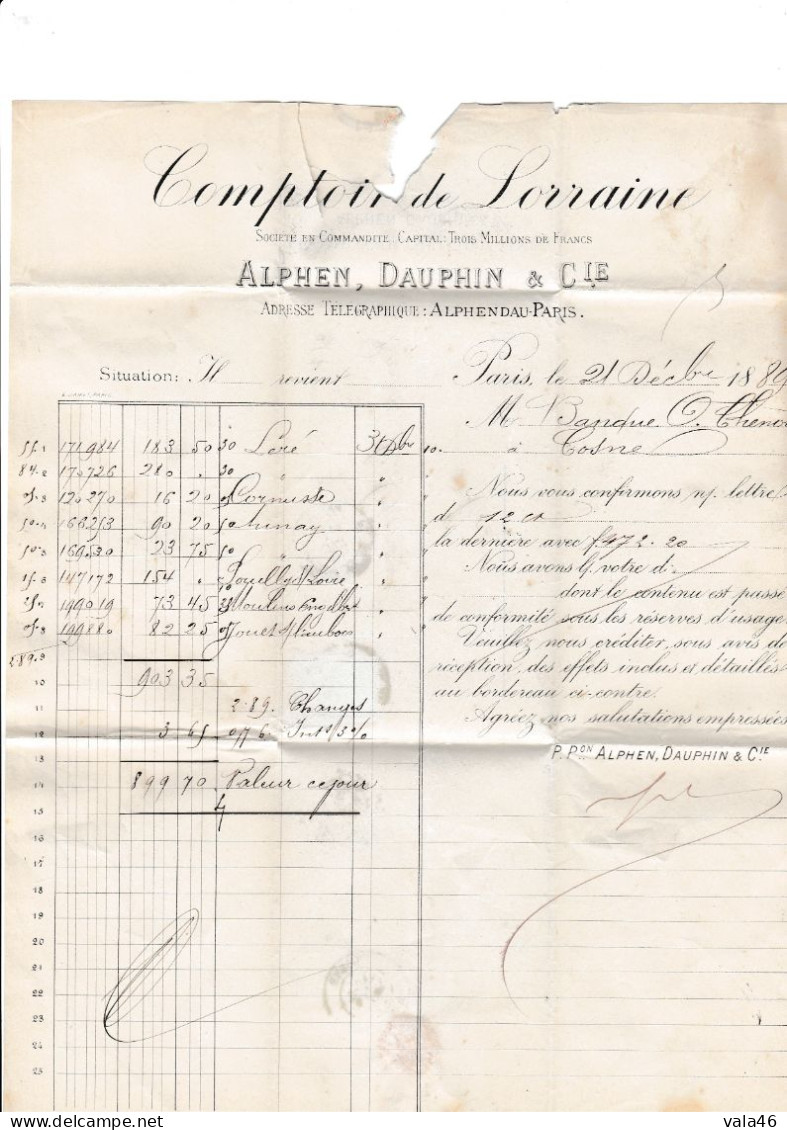 Comptoir de Lorraine
SOCIÉTÉ EN COMMANDITE. CAPITAL: TROIS MILLIONS DE FRANCS
ALPHEN, DAUPHIN & CIE
ADRESSE TÉLÉGRAPHIQUE: ALPHENDAU-PARIS.
Situation: Il revient
Paris, le 21 Décbre 1889
M Banque O. 
à Cosne
171984 183 50 30 Léré 31 Xbre
170726 280 . 30 "
120270 16 20 "
166253 90 20 "
169520 23 75 "
147172 154 . Pouilly s/ Loire "
199019 73 45 Moulins Engilbert "
199880 82 25 Jouet "
10 903 35
11 2.89. Changes
12 3 65 0.76 Ints 3%
13
14 899 70 Valeur ce jour
15
16
17
18
19
20
21
22
23
24
25
Nous vous confirmons n/. lettre
d 12 ct
la dernière avec f. 472.20
Nous avons l/. votre d:
dont le contenu est passé
de conformité sous les réserves d'usage.
Veuillez nous créditer, sous avis de
réception, des effets inclus et détaillés
au bordereau ci-contre.
Agréez nos salutations empressées
P. PON ALPHEN, DAUPHIN & CIE
delcampe.net
vala46